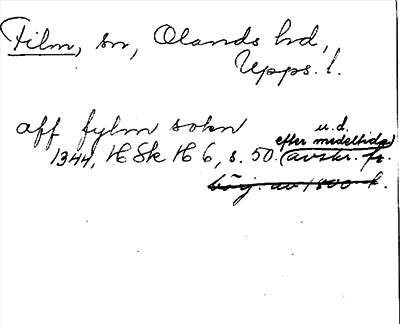 Film, sn, Olands hd,
Upps. l.
aff fylm sokn u.d.
efter medeltida
1344, HSk H 6, s. 50. (avskr. fr.
börj. av 1800-t.